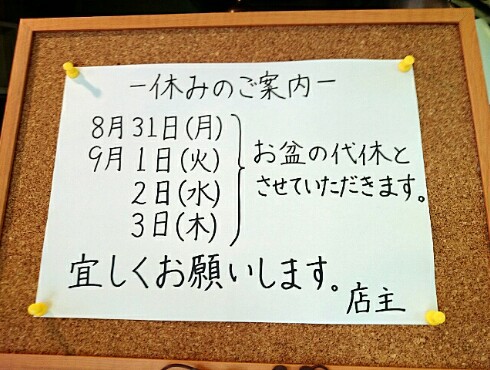 ー休みのご案内ー
8月31日(月)
9月1日(火)
2日(水)
3日(木)
お盆の代休と
させていただきます。
宜しくお願いします。
店主